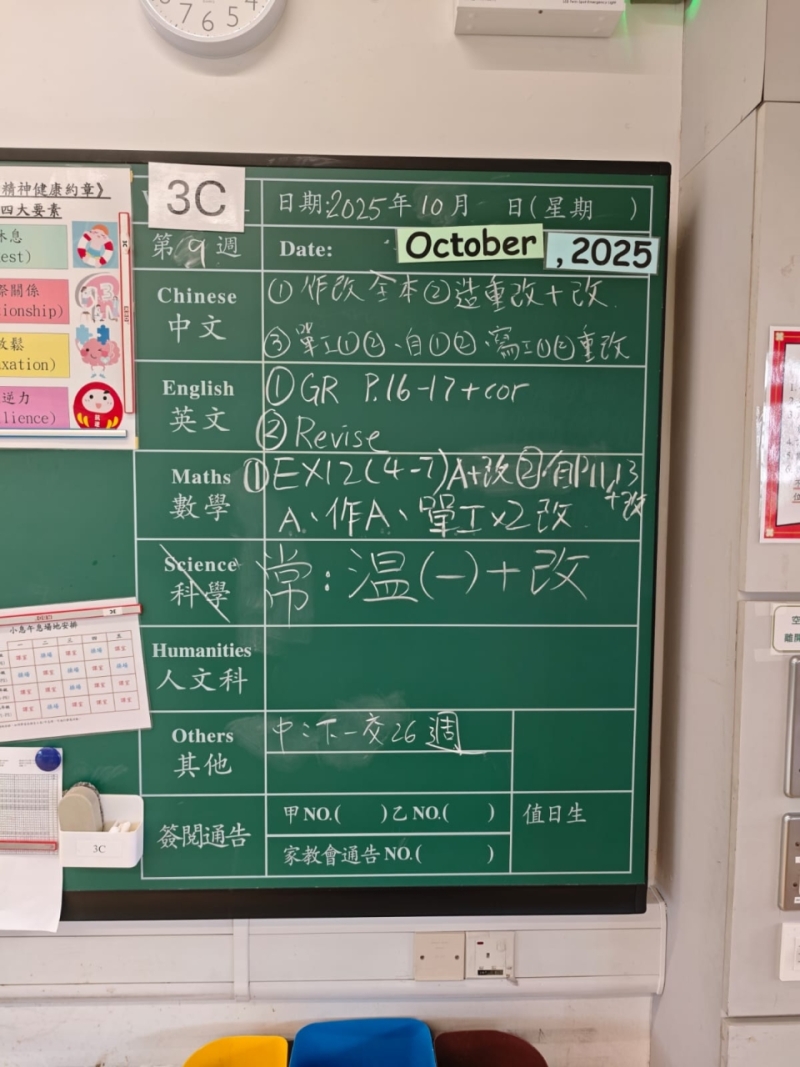 7 6 5
精神健康約章》
四大要素
休息
est)
際關係
tionship)
放鬆
xation)
逆力
lience)
3C
日期:2025年10月 日(星期 )
第9週
Date:
October
, 2025
Chinese
中文
①作改全本②造重改+改
③單工①②、自①②、寫工①②重改
English
英文
①GR P.16-17+cor
②Revise
Maths
數學
①EX12(4-7)A+改②自P11,13
+改
A、作A、單工x2改
Science
科學
常:温(一)+改
Humanities
人文科
Others
其他
中:下一交26週
簽閱通告
甲NO.( )乙NO.( )
家教會通告NO.( )
值日生
小息午息場地安排
一 二 三 四 五
3C